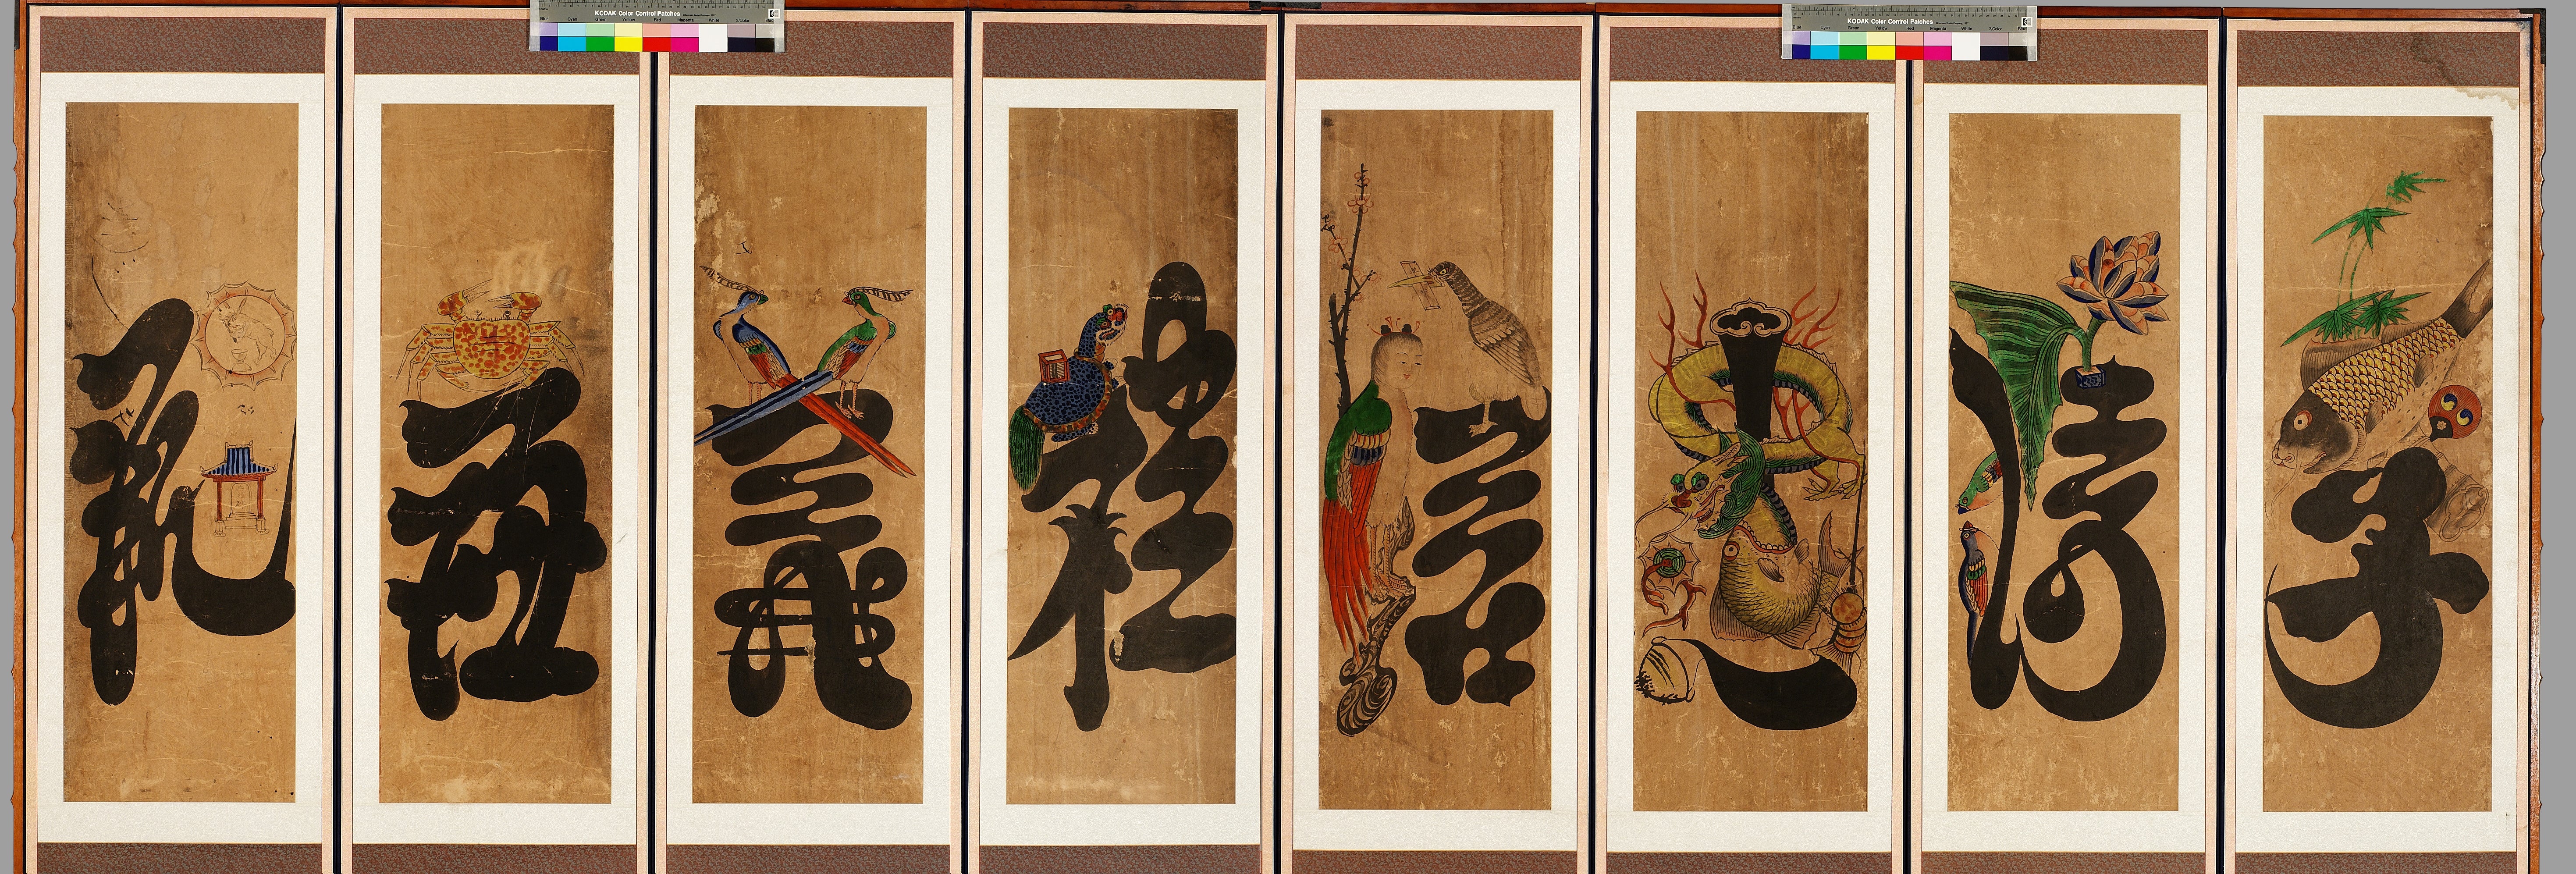 孝
悌
忠
信
禮
義
廉
恥
KODAK Color Control Patches
Blue Cyan Green Yellow Red Magenta White 3/Color Black
KODAK Color Control Patches
Blue Cyan Green Yellow Red Magenta White 3/Color Black